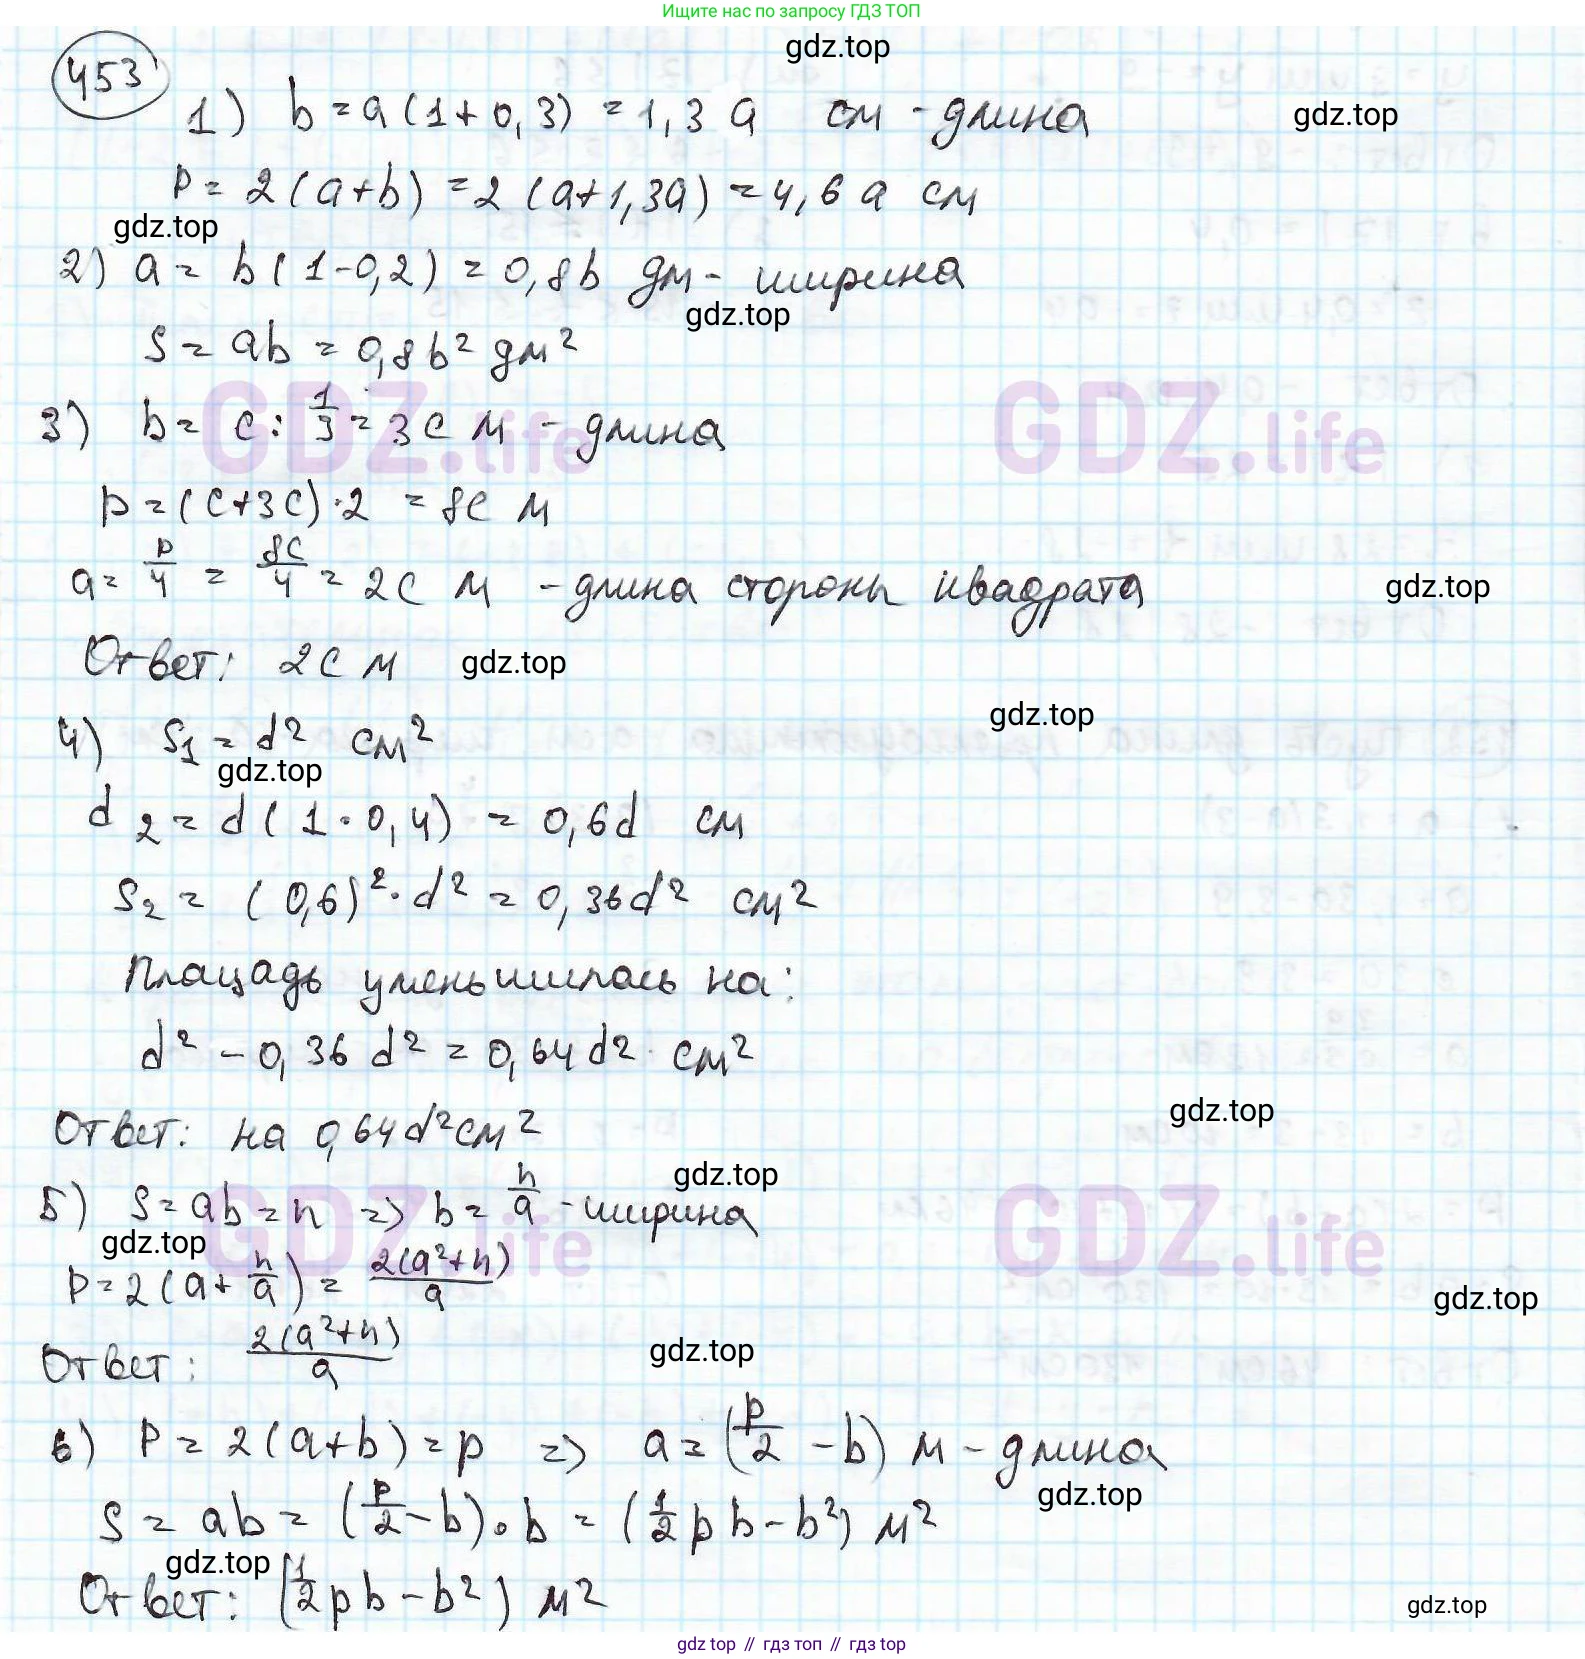 Ищите нас по запросу ГДЗ ТОП
gdz.top
453
1) b = a(1+0,3) = 1,3 a см - длина
gdz.top
P = 2(a+b) = 2(a+1,3a) = 4,6 a см
gdz.top
2) a = b(1-0,2) = 0,8b дм - ширина
gdz.top
S = ab = 0,8b² дм²
GDZ.life GDZ.life
3) b = c : 1/3 = 3c м - длина
p = (c+3c)·2 = 8c м
a = p/4 = 8c/4 = 2c м - длина стороны квадрата
gdz.top
Ответ: 2c м
gdz.top
gdz.top
4) S₁ = d² см²
gdz.top
d₂ = d(1·0,4) = 0,6d см
S₂ = (0,6)²·d² = 0,36d² см²
Площадь уменьшилась на:
d² - 0,36 d² = 0,64d² см²
gdz.top
Ответ: на 0,64d² см²
gdz.top
5) S = ab = n => b = n/a - ширина
GDZ.life GDZ.life
gdz.top
P = 2(a + n/a) = 2(a²+n)/a
gdz.top
Ответ: 2(a²+n)/a
gdz.top
6) P = 2(a+b) = p => a = (p/2 - b) м - длина
gdz.top
S = ab = (p/2 - b)·b = (1/2 pb - b²) м²
gdz.top
Ответ: (1/2 pb - b²) м²
gdz.top
gdz top // гдз топ // гдз top